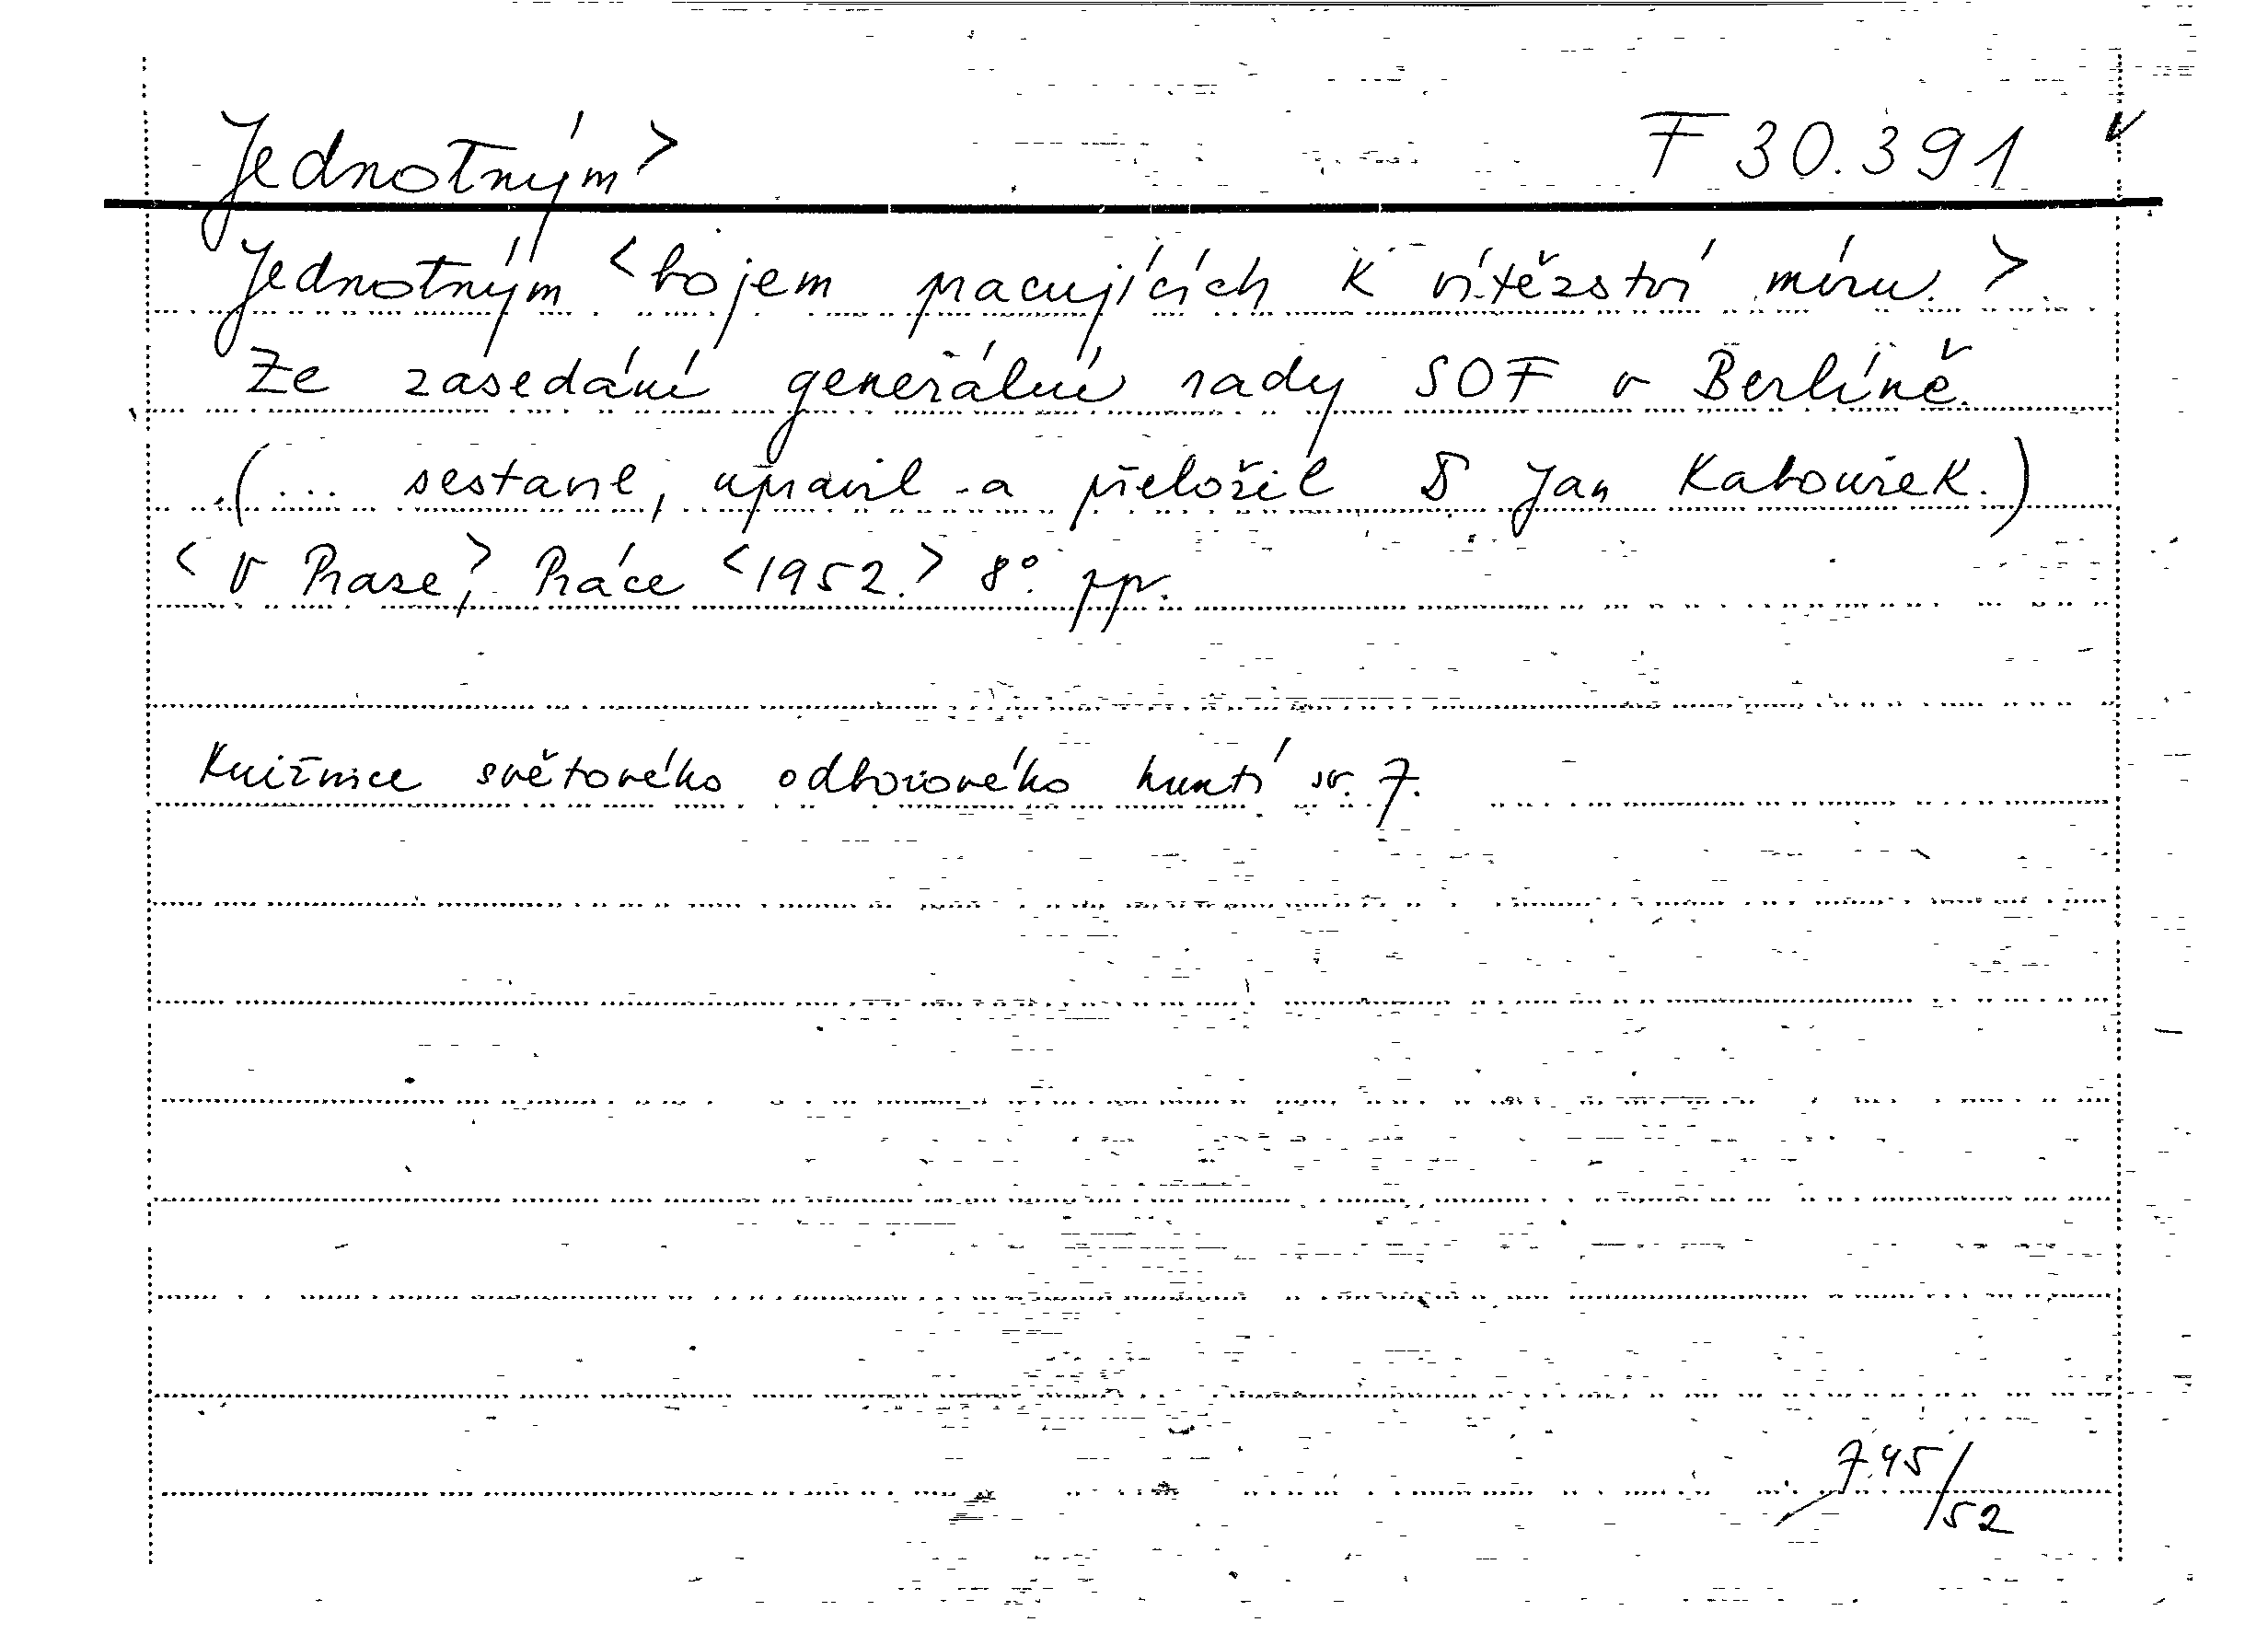 Jednotným > F 30.391 ✓
Jednotným < bojem pracujících k vítězství míru. >
Ze zasedání generální rady SOF v Berlíně.
(... sestavil, upravil a přeložil Jan Kabourek.)
< V Praze, > Práce < 1952. > 8°. pp.
Knižnice světového odborového hnutí sv. 7.
7.45/52